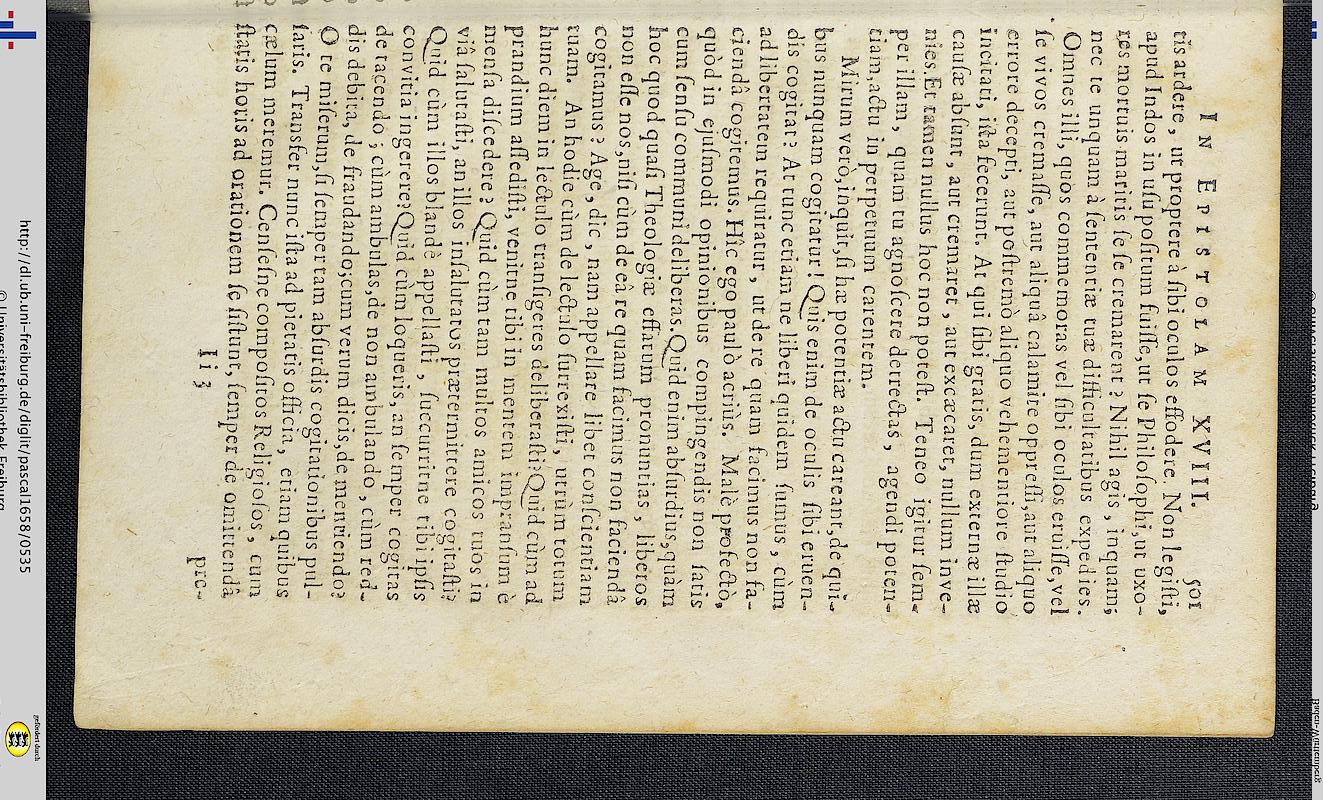 IN EPISTOLAM XVIII. 501
tis ardere, ut propterè à sibi oculos effodere. Non legisti,
apud Indos in usu positum fuisse, ut se Philosophi, ut uxo-
res mortuis maritis se se cremarent? Nihil agis, inquam;
nec te unquam à sententiæ tuæ difficultatibus expedies.
Omnes illi, quos commemoras vel sibi oculos eruisse, vel
se vivos cremasse, aut aliquâ calamite oppressi, aut aliquo
errore decepti, aut postremò aliquo vehementiore studio
incitati, ista fecerunt. At qui sibi gratis, dum externæ illæ
causæ absunt, aut cremaret, aut excæcaret, nullum inve-
nies Et tamen nullus hoc non potest. Teneo igitur sem-
per illam, quam tu agnoscere detrectas, agendi poten-
tiam, actu in perpetuum carentem.
Mirum verò, inquit, si hæ potentiæ actu careant, de qui-
bus nunquam cogitatur! Quis enim de oculis sibi eruen-
dis cogitat? At tunc etiam ne liberi quidem sumus, cùm
ad libertatem requiratur, ut de re quam facimus non fa-
ciendâ cogitemus. Hîc ego paulò acriùs. Malè profectò,
quòd in ejusmodi opinionibus compingendis non satis
cum sensu communi deliberas. Quid enim absurdius, quàm
hoc quod quasi Theologiæ effatum pronuntias, liberos
non esse nos, nisi cùm de eâ re quam facimus non faciendâ
cogitamus? Age, dic, nam appellare libet conscientiam
tuam. An hodie cùm de lectulo surrexisti, utrùm totum
hunc diem in lectulo transigeres deliberasti? Quid cùm ad
prandium assedisti, venitne tibi in mentem impransum è
mensa discedere? Quid cùm tam multos amicos tuos in
viâ salutasti, an illos insalutatos prætermittere cogitasti?
Quid cùm illos blandè appellasti, succurritne tibi ipsis
convitia ingerere? Quid cùm loqueris, an semper cogitas
de tacendo; cùm ambulas, de non ambulando, cùm red-
dis debita, de fraudando; cum verum dicis, de mentiendo?
O te miserum, si semper tam absurdis cogitationibus pul-
saris. Transfer nunc ista ad pietatis officia, etiam quibus
cælum meremur. Censesne compositos Religiosos, cum
statis horis ad orationem se sistunt, semper de omittendâ
Ii 3 pre-
http://dl.ub.uni-freiburg.de/diglit/pascal1658/0535
© Universitätsbibliothek Freiburg
gefördert durch